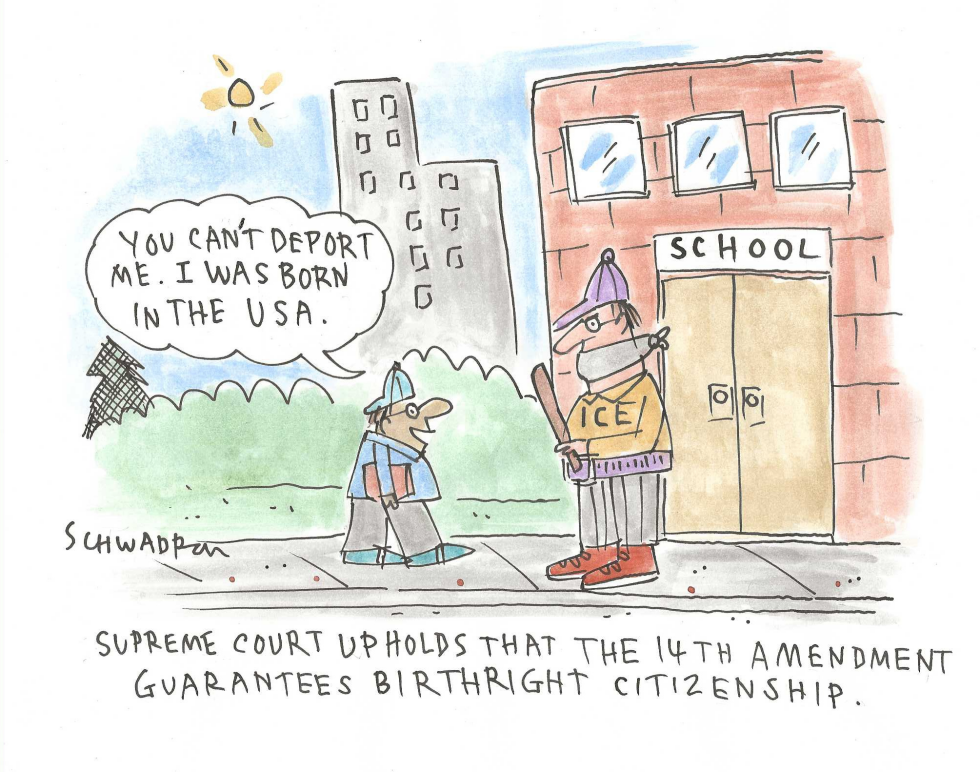 YOU CAN'T DEPORT
ME. I WAS BORN
IN THE USA.
SCHOOL
ICE
SCHWADRON
SUPREME COURT UPHOLDS THAT THE 14TH AMENDMENT
GUARANTEES BIRTHRIGHT CITIZENSHIP.